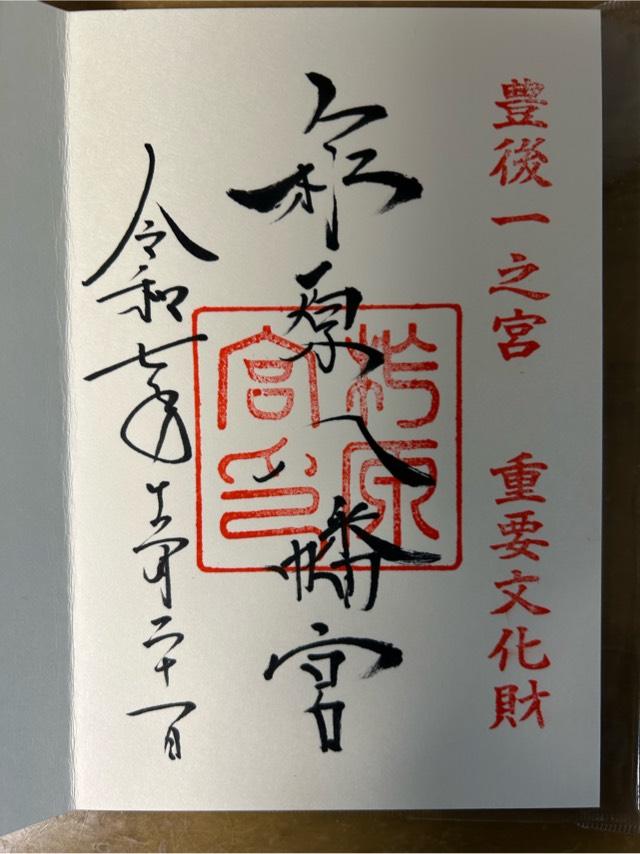 豊後一之宮　重要文化財
柞原八幡宮
柞原
宮印
令和七年十一月二十一日